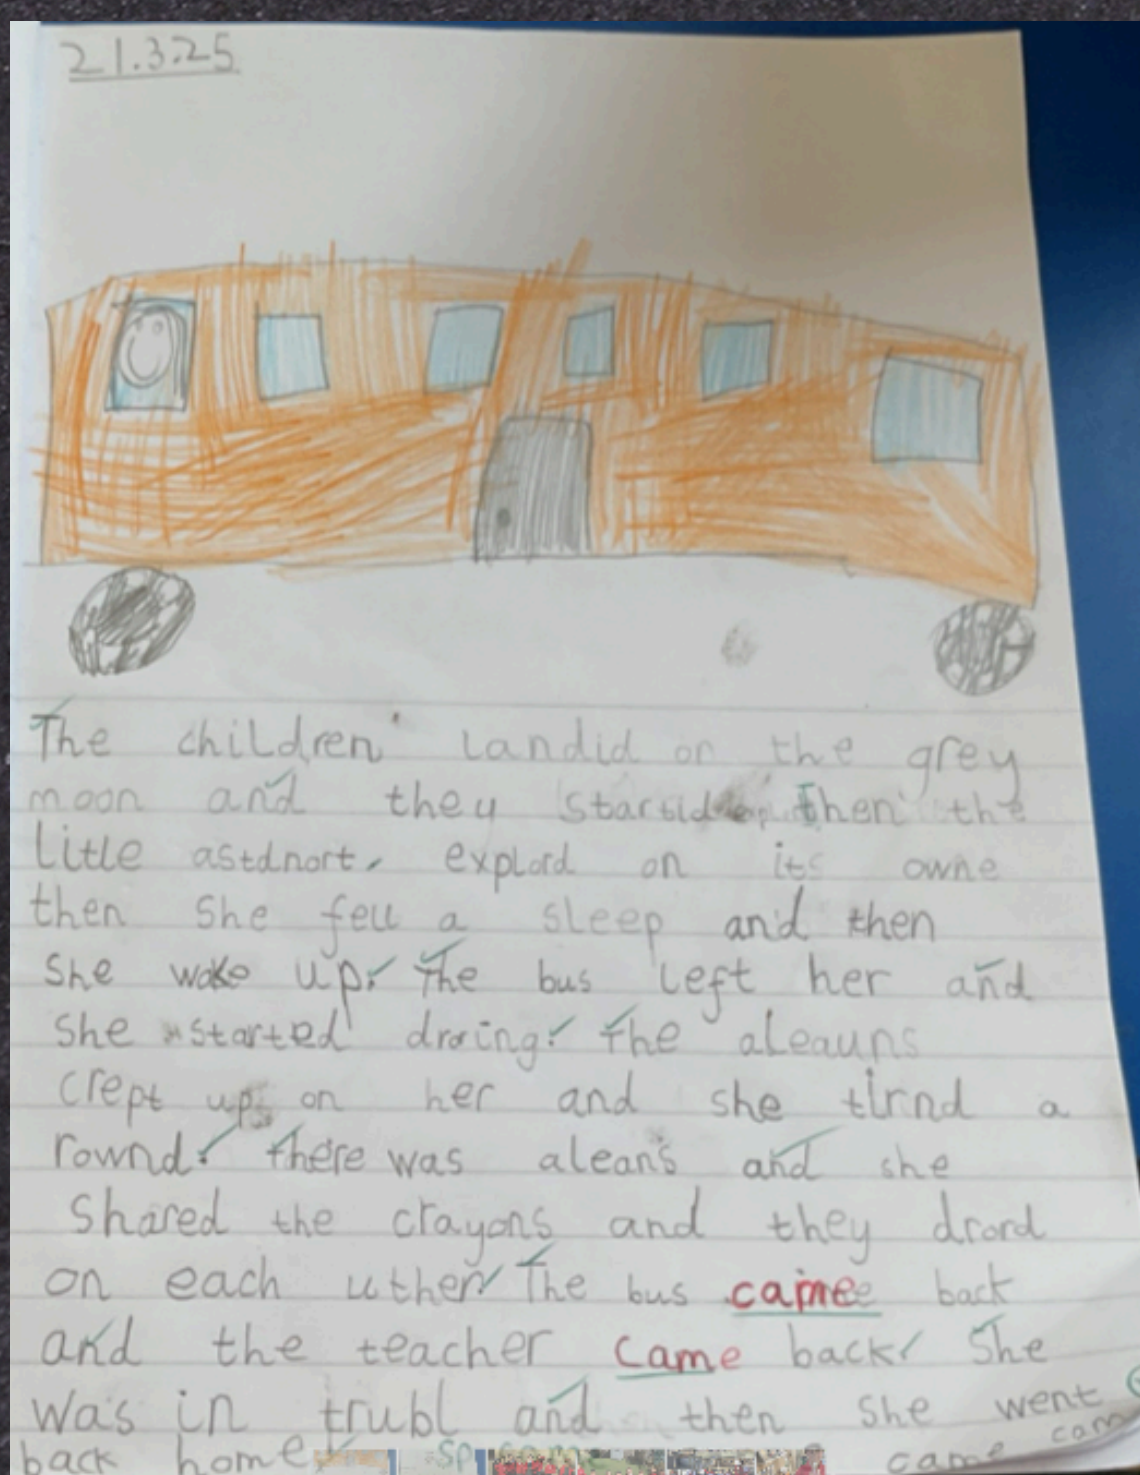 21.3.25
The children landid on the grey
moon and they startid then the
litle astdnort. explord on its owne
then she fell a sleep and then
she woke up. The bus left her and
she started droring. The aleauns
crept up on her and she tirnd a
rownd. There was aleans and she
shared the crayons and they drord
on each uther The bus came back
and the teacher came back She
was in trubl and then she went
back home sp came came